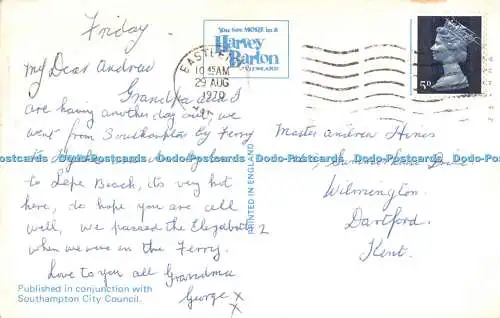 Friday.
My Dear Andrew
Grandpa and I
are having another day out, we
went from Southampton by Ferry
to
to Lepe Beach, its very hot
here, do hope you are all
well, we passed the Elizabeth 2
when we were in the Ferry.
Love to you all Grandma
George x x
Published in conjunction with
Southampton City Council.
PRINTED IN ENGLAND
You See MORE in a
Harvey
Barton
VIEWCARD
10 AM
29 AUG
1970
5D
Master Andrew
Drive
Wilmington.
Dartford.
Kent.
Dodo-Postcards Dodo-Postcards Dodo-Postcards Dodo-Postcards Dodo-Postcards Dodo-Postcards